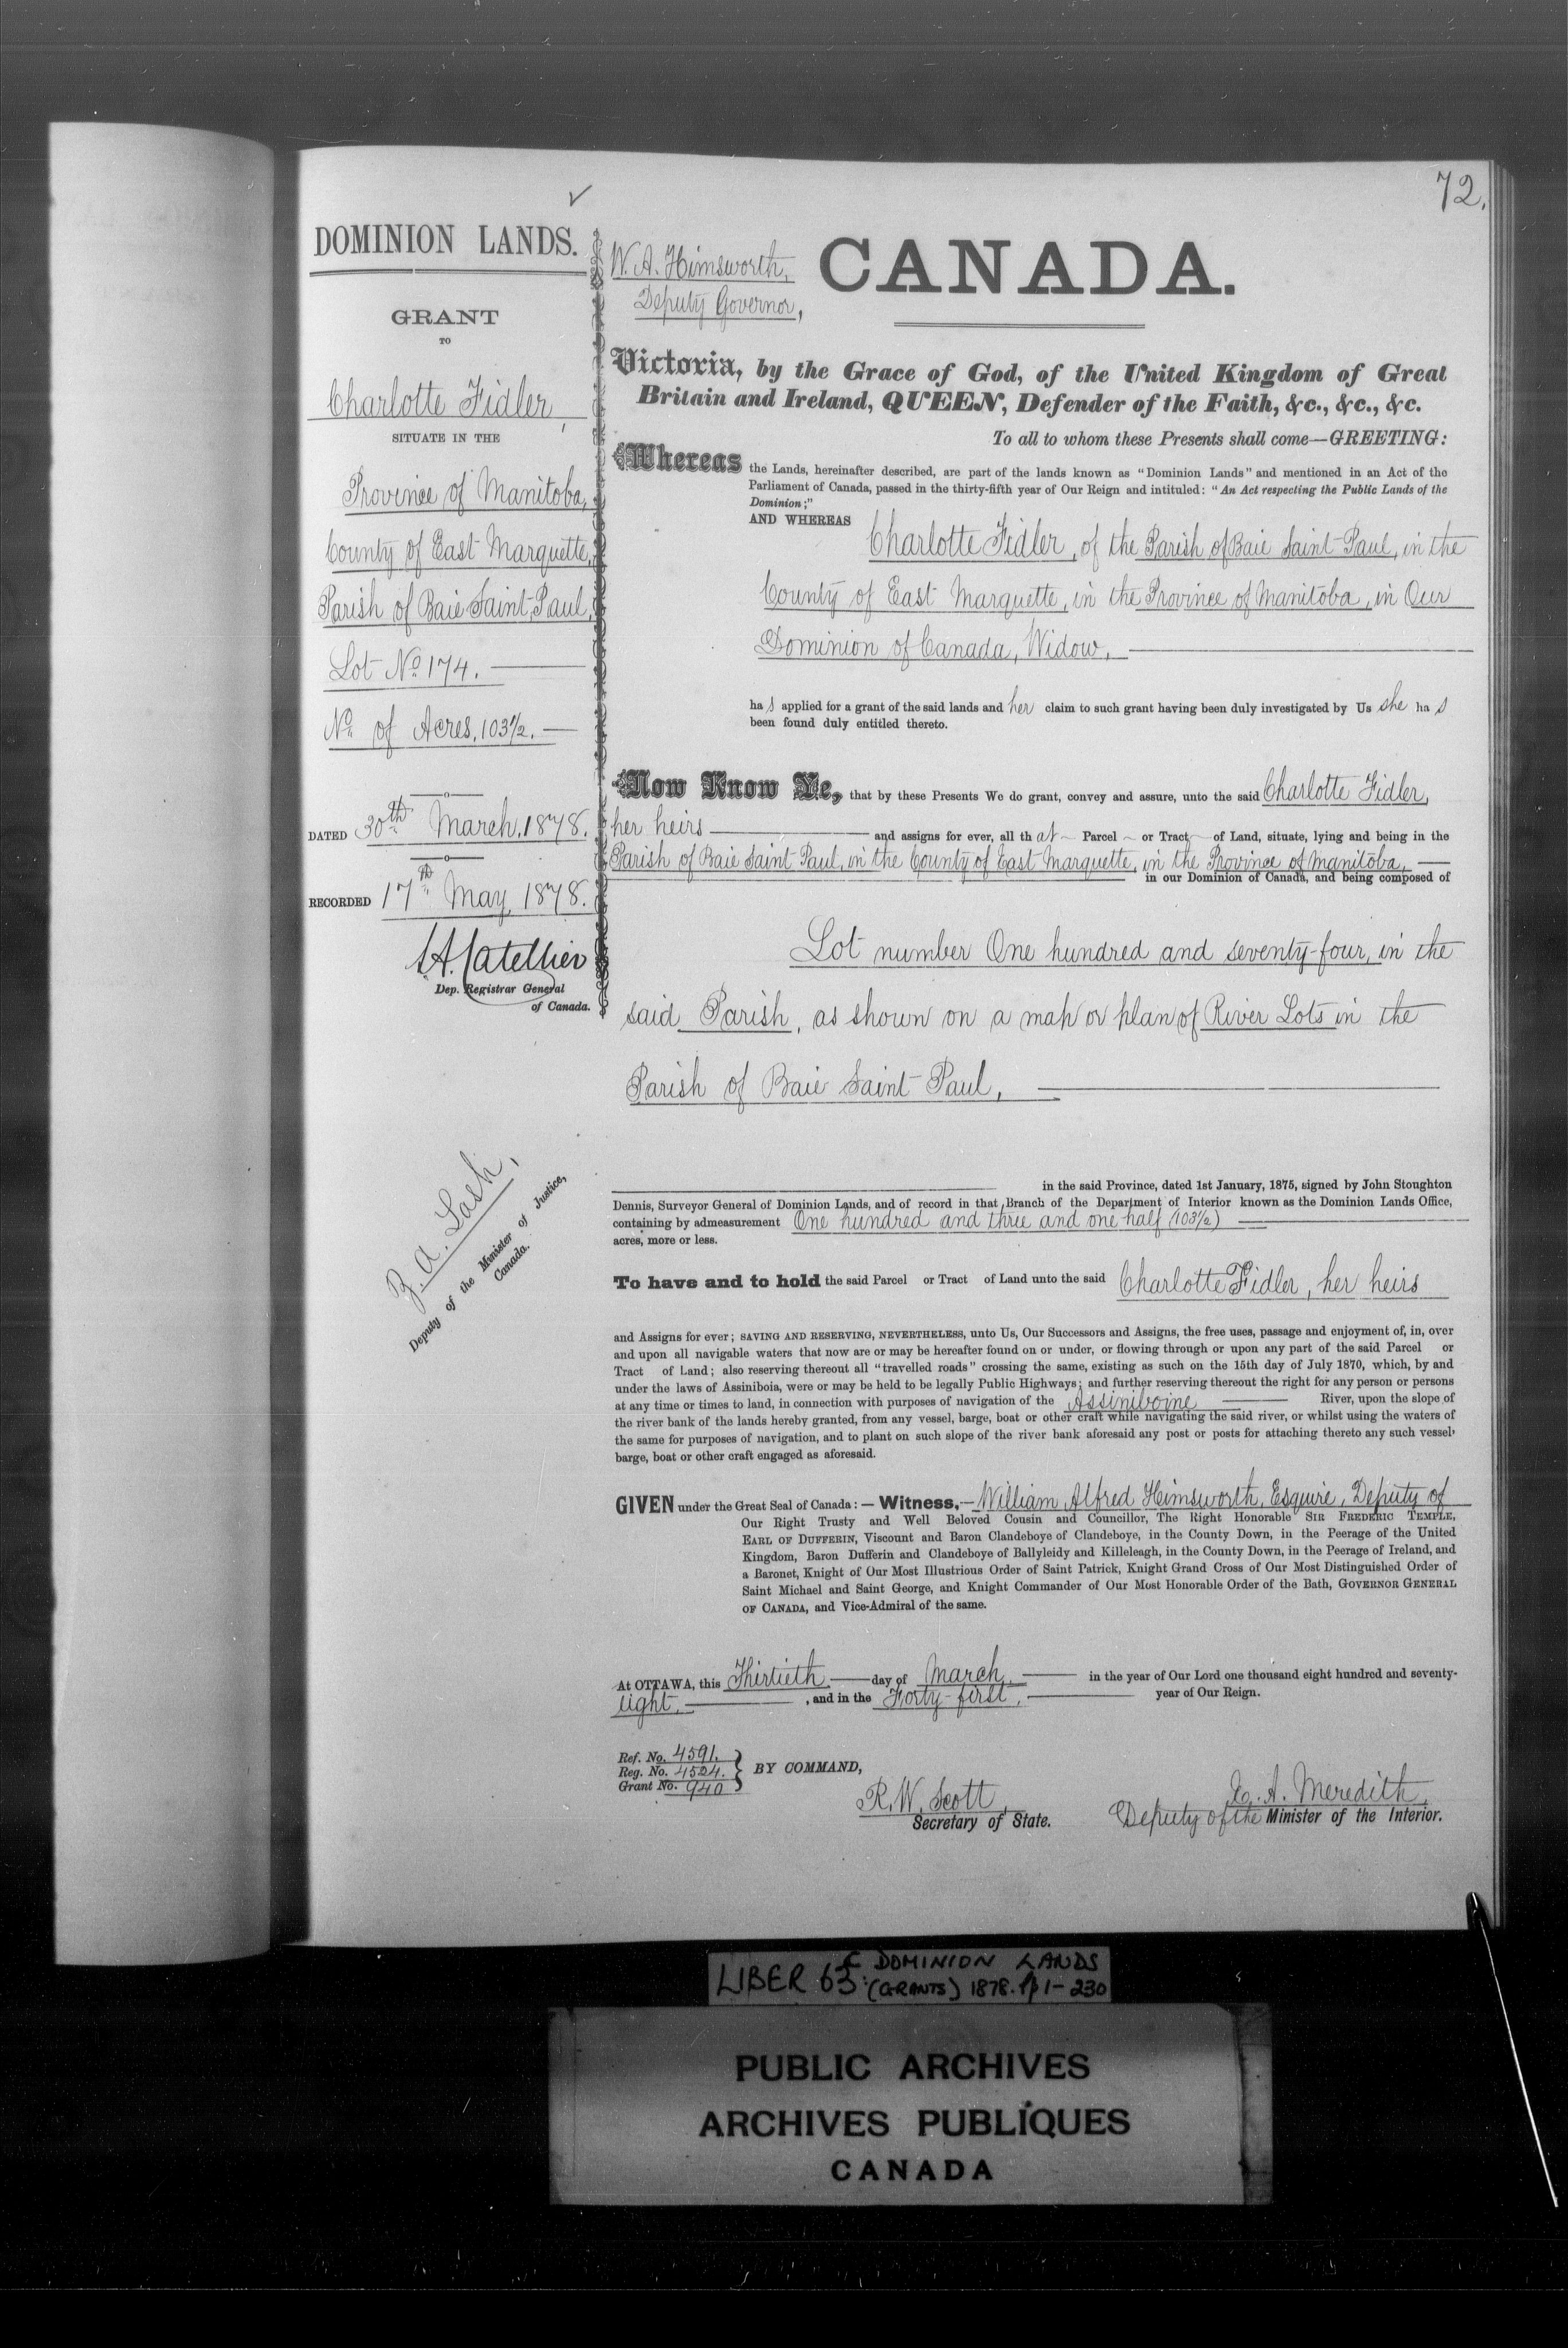 72.
DOMINION LANDS.
GRANT
TO
Charlotte Fidler,
SITUATE IN THE
Province of Manitoba,
County of East Marquette,
Parish of Baie Saint Paul,
Lot No. 174.
No. of Acres, 103½.
DATED 30th March, 1878.
RECORDED 17th May, 1878.
L.A. Catellier
Dep. Registrar General
of Canada.
Z. A. Lash,
Deputy of the Minister of Justice,
Canada.
W. A. Himsworth,
Deputy Governor,
CANADA.
Victoria, by the Grace of God, of the United Kingdom of Great
Britain and Ireland, QUEEN, Defender of the Faith, &c., &c., &c.
To all to whom these Presents shall come—GREETING:
Whereas the Lands, hereinafter described, are part of the lands known as "Dominion Lands" and mentioned in an Act of the
Parliament of Canada, passed in the thirty-fifth year of Our Reign and intituled: "An Act respecting the Public Lands of the
Dominion;"
AND WHEREAS Charlotte Fidler, of the Parish of Baie Saint Paul, in the
County of East Marquette, in the Province of Manitoba, in Our
Dominion of Canada, Widow,
ha s applied for a grant of the said lands and her claim to such grant having been duly investigated by Us she ha s
been found duly entitled thereto.
Now Know Ye, that by these Presents We do grant, convey and assure, unto the said Charlotte Fidler,
her heirs and assigns for ever, all th at Parcel or Tract of Land, situate, lying and being in the
Parish of Baie Saint Paul, in the County of East Marquette, in the Province of Manitoba,
in our Dominion of Canada, and being composed of
Lot number One hundred and seventy-four, in the
said Parish, as shown on a map or plan of River Lots in the
Parish of Baie Saint Paul,
in the said Province, dated 1st January, 1875, signed by John Stoughton
Dennis, Surveyor General of Dominion Lands, and of record in that Branch of the Department of Interior known as the Dominion Lands Office,
containing by admeasurement One hundred and three and one half (103½)
acres, more or less.
To have and to hold the said Parcel or Tract of Land unto the said Charlotte Fidler, her heirs
and Assigns for ever; SAVING AND RESERVING, NEVERTHELESS, unto Us, Our Successors and Assigns, the free uses, passage and enjoyment of, in, over
and upon all navigable waters that now are or may be hereafter found on or under, or flowing through or upon any part of the said Parcel or
Tract of Land; also reserving thereout all "travelled roads" crossing the same, existing as such on the 15th day of July 1870, which, by and
under the laws of Assiniboia, were or may be held to be legally Public Highways; and further reserving thereout the right for any person or persons
at any time or times to land, in connection with purposes of navigation of the Assiniboine River, upon the slope of
the river bank of the lands hereby granted, from any vessel, barge, boat or other craft while navigating the said river, or whilst using the waters of
the same for purposes of navigation, and to plant on such slope of the river bank aforesaid any post or posts for attaching thereto any such vessel,
barge, boat or other craft engaged as aforesaid.
GIVEN under the Great Seal of Canada:—Witness,—William Alfred Himsworth, Esquire, Deputy of
Our Right Trusty and Well Beloved Cousin and Councillor, The Right Honorable SIR FREDERIC TEMPLE,
EARL OF DUFFERIN, Viscount and Baron Clandeboye of Clandeboye, in the County Down, in the Peerage of the United
Kingdom, Baron Dufferin and Clandeboye of Ballyleidy and Killeleagh, in the County Down, in the Peerage of Ireland, and
a Baronet, Knight of Our Most Illustrious Order of Saint Patrick, Knight Grand Cross of Our Most Distinguished Order of
Saint Michael and Saint George, and Knight Commander of Our Most Honorable Order of the Bath, GOVERNOR GENERAL
OF CANADA, and Vice-Admiral of the same.
At OTTAWA, this Thirtieth day of March in the year of Our Lord one thousand eight hundred and seventy-
eight, , and in the Forty-first, year of Our Reign.
Ref. No. 4591.
Reg. No. 4524.
Grant No. 940
BY COMMAND,
R. W. Scott,
Secretary of State.
E. A. Meredith,
Deputy of the Minister of the Interior.
LIBER 63: C DOMINION LANDS
(GRANTS) 1878. pp 1-230
PUBLIC ARCHIVES
ARCHIVES PUBLIQUES
CANADA